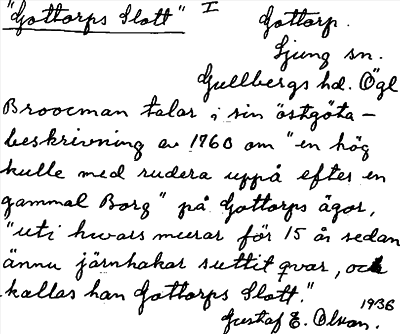 "Gottorps Slott" I Gottorp.
Ljung sn.
Gullbergs hd. Ögl
Broocman talar i sin östgöta-
beskrivning av 1760 om "en hög
kulle med rudera uppå efter en
gammal Borg" på Gottorps ägor,
"uti hwars murar för 15 år sedan
ännu järnhakar suttit qvar, och
kallas han Gottorps Slott."
1936
Gustaf E. Olson.